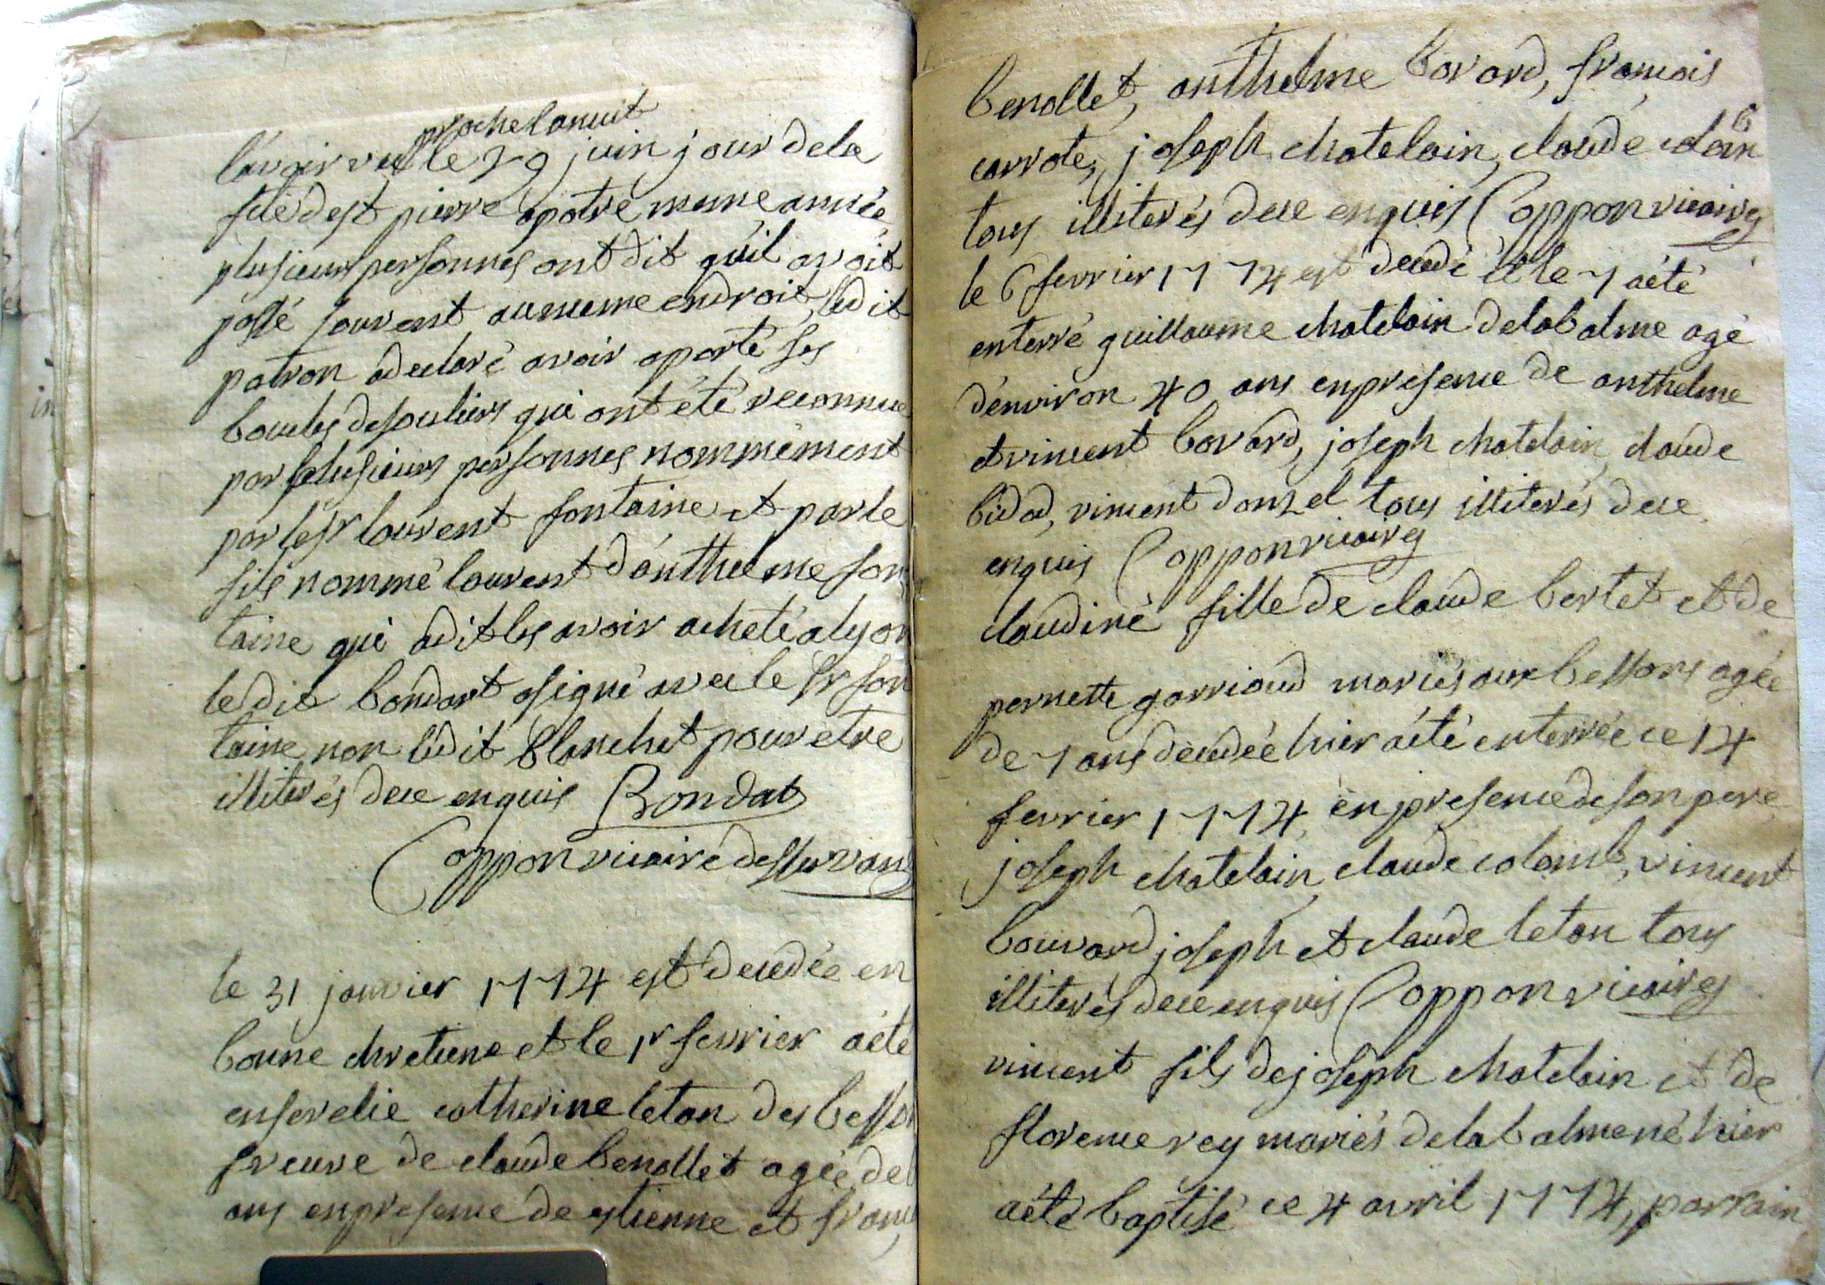 proche la nuit
l'avoir vu le 29 juin jour de la
fete de st pierre apotre meme année
plusieurs personnes ont dit qu'il avoit
passé souvent au meme endroit, ledit
patron a declaré avoir aporté ses
boucles de souliers qui ont été reconnues
par plusieurs personnes nommément
par le sr laurent fontaine et par le
fils nommé laurent d'anthelme fon
taine qui a dit les avoir acheté a lyon
ledit bondat a signé avec le sr fon
taine non ledit Blanchet pour etre
illiterés de ce enquis Bondat
Coppon vicaire desservant
le 31 janvier 1774 est decedée en
bonne chretiene et le 1r fevrier a été
ensevelie catherine leton des besso
veuve de claude benollet agée de
ans en presence de etienne et franc
benollet, anthelme bovard, francois
carrote, joseph chatelain, claude colomb
tous illiterés de ce enquis Coppon vicaire
le 6 fevrier 1774 est decedé et le 7 a été
enterré guillaume chatelain de la balme agé
d'environ 40 ans en presence de anthelme
et vincent bovard, joseph chatelain, claude
bidod, vincent donzel tous illiterés de ce
enquis Coppon vicaire
claudine fille de claude bertet et de
pernette garrioud mariés aux bessons agée
de 7 ans decedée hier a été enterrée ce 14
fevrier 1774 en presence de son pere
joseph chatelain, claude colomb, vincent
bouvard joseph et claude leton tous
illiterés de ce enquis Coppon vicaire
vincent fils de joseph chatelain et de
florence rey mariés de la balme né hier
a été baptisé ce 4 avril 1774, parrain